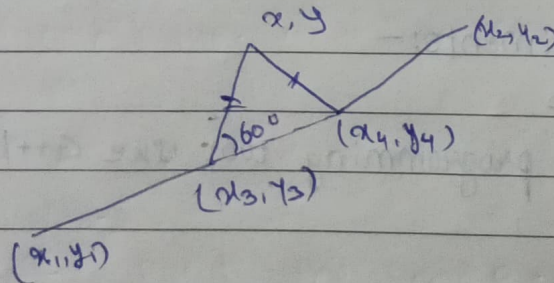 x, y
(x2, y2)
60°
(x4, y4)
(x3, y3)
(x1, y1)